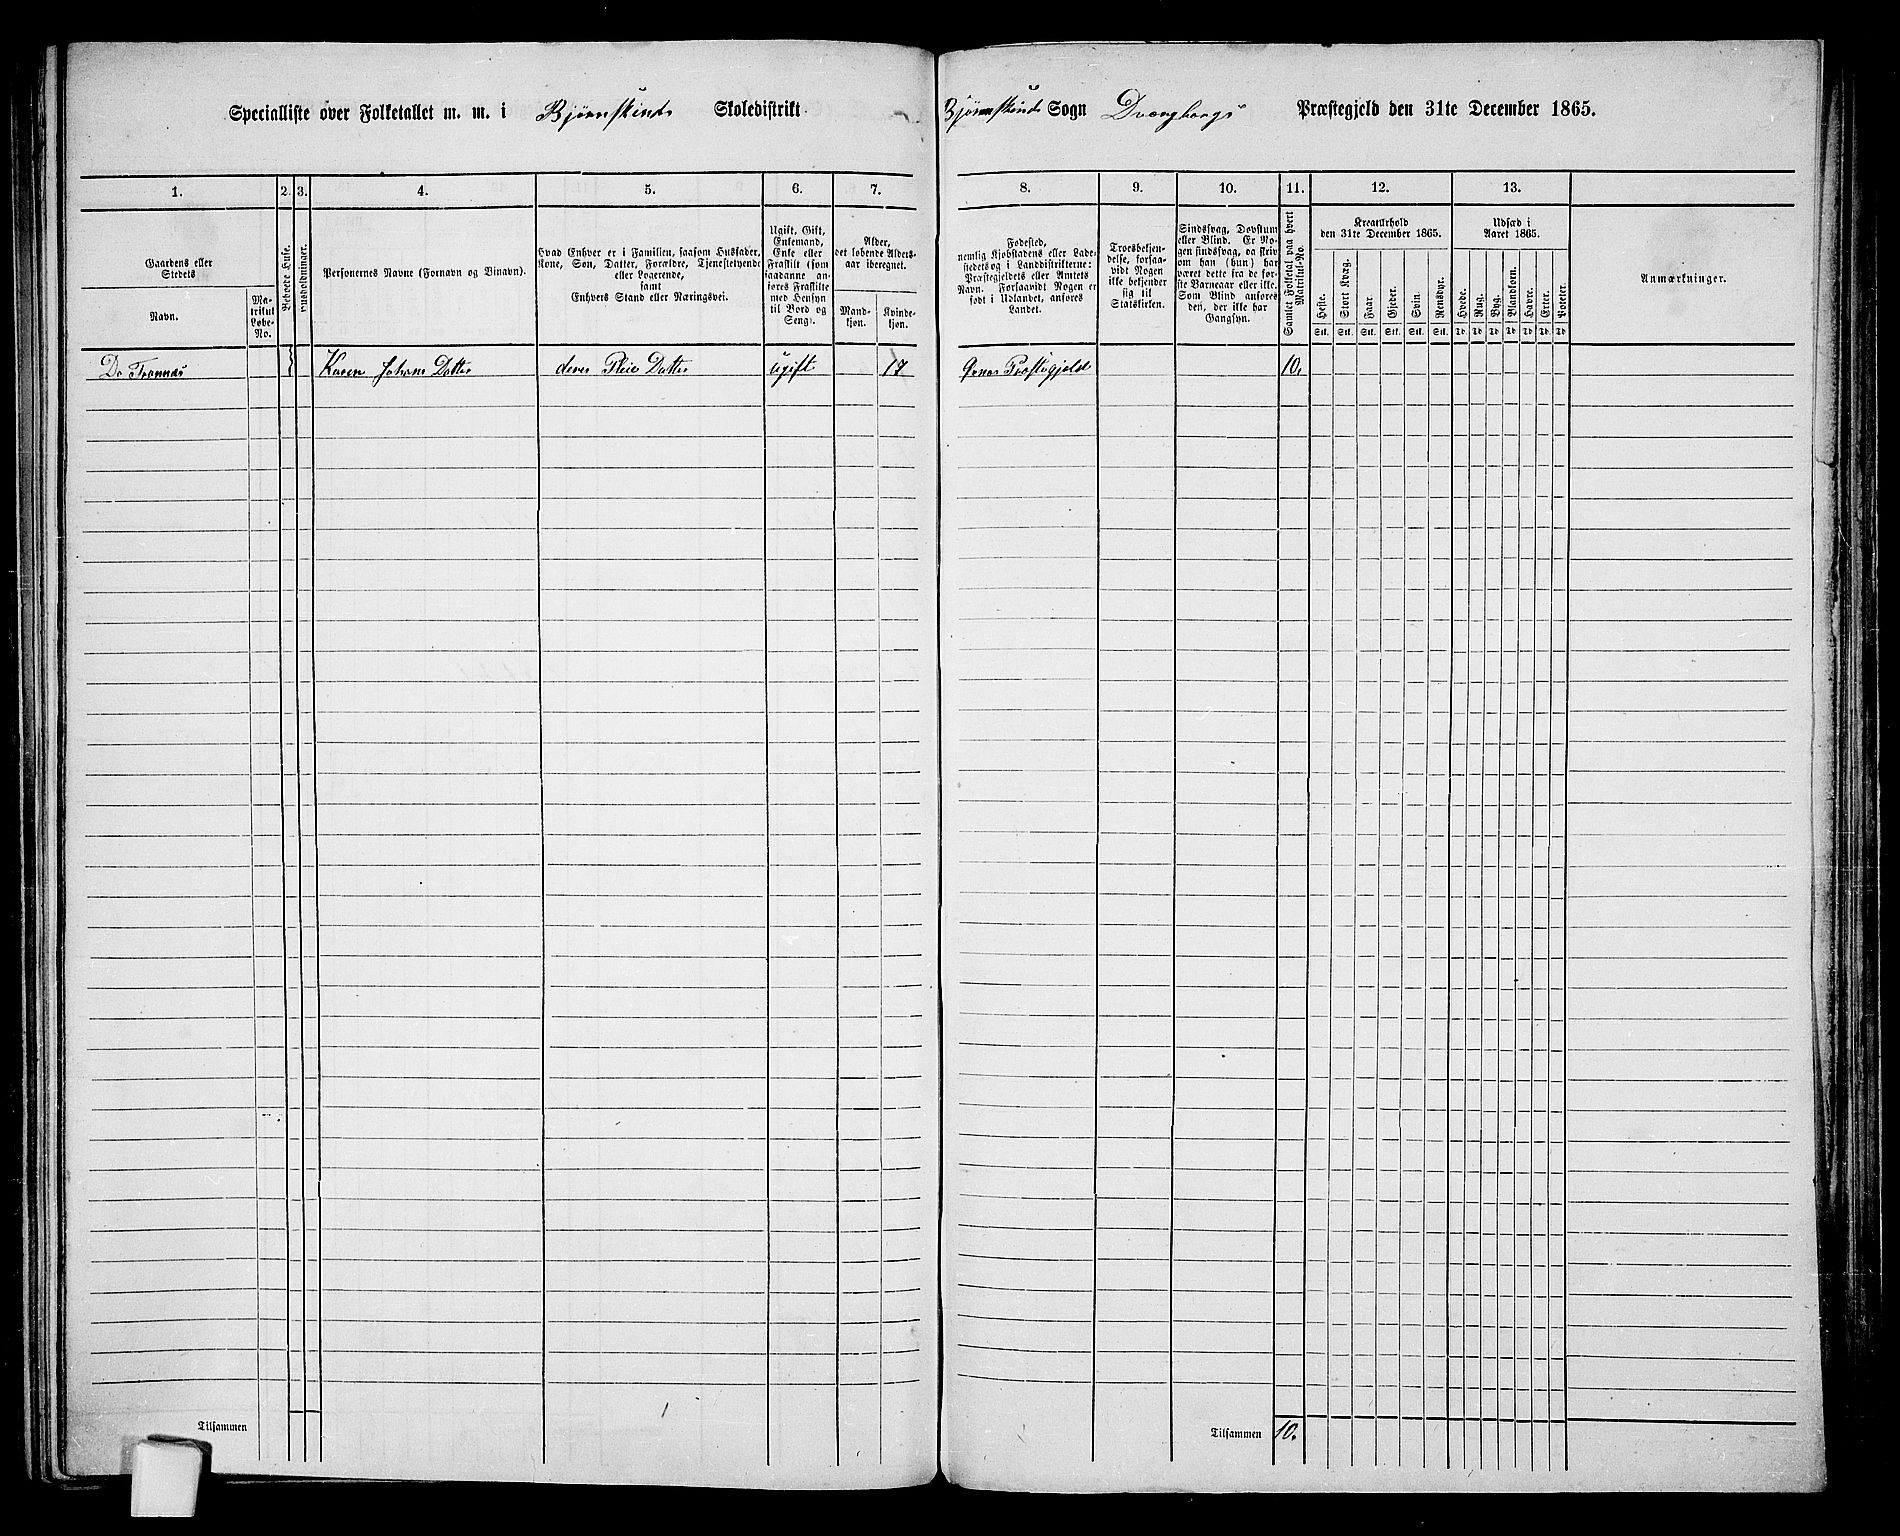 Specialliste over Folketallet m. m. i Bjørnskinds Skoledistrikt Bjørnskinds Sogn Dvergbergs Præstegjeld den 31te December 1865.
1. 2. 3. 4. 5. 6. 7. 8. 9. 10. 11. 12. 13.
Gaardens eller
Stedets
Navn.
Ma-
trikul
Løbe-
No.
Beboede Huse.
Husholdninger.
Personernes Navne (Fornavn og Binavn).
Hvad Enhver er i Familien, saasom Husfader,
Kone, Søn, Datter, Forældre, Tjenestetyende
eller Logerende,
samt
Enhvers Stand eller Næringsvei.
Ugift, Gift,
Enkemand,
Enke eller
Fraskilt (som
saadanne an-
føres Fraskilte
med Hensyn
til Bord og
Seng).
Alder,
det løbende Alders-
aar iberegnet.
Mand-
kjøn.
Kvinde-
kjøn.
Fødested,
nemlig Kjøbstadens eller Lade-
stedets og i Landdistrikterne:
Præstegjeldets eller Amtets
Navn. Forsaavidt Nogen er
født i Udlandet, anføres
Landet.
Troesbekjen-
delse, forsaa-
vidt Nogen
ikke bekjender
sig til
Statskirken.
Sindssvag, Døvstum
eller Blind. Er No-
gen sindssvag, da skriv
om han (hun) har
været dette fra de før-
ste Barneaar eller ikke.
Som Blind anføres
den, der ikke har
Gangsyn.
Samlet Folketal paa hvert
Matrikul-No.
Kreaturhold
den 31te December 1865.
Heste.
Stort Kvæg.
Faar.
Gjeder.
Svin.
Rensdyr.
Stk. Stk. Stk. Stk. Stk. Stk.
Udsæd i
Aaret 1865.
Hvede.
Rug.
Byg.
Blandkorn.
Havre.
Erter.
Poteter.
Td Td Td Td Td Td Td
Anmærkninger.
Do Trannæs Karen Johans Datter deres Pleie Datter ugift 17 Ørnæs Præstegjeld 10.
Tilsammen Tilsammen 10.